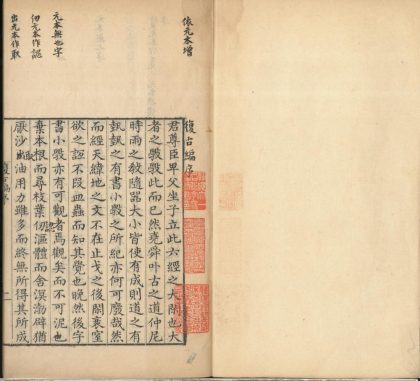 依元本增
復古編序
君尊臣卑父坐子立此六經之大閑也大
者之敎敎此而已然堯舜卟古之道仲尼
時雨之敎隨器大小皆使有成則道之有
埶埶之有書小敎之所紀亦何可廢哉然
而經天緯地之文不在止戈之後閑衺窒
欲之 不叚皿蟲而知其覺也晚然後字
書小敎亦有可觀者焉觀矣而不可泥也
棄本根而尋枝葉仞漚體而舍溟渤辟猶
厭沙出油用力雖多而終無所得其所成
元本無也字
仞元本作認
出元本作取
復古編序